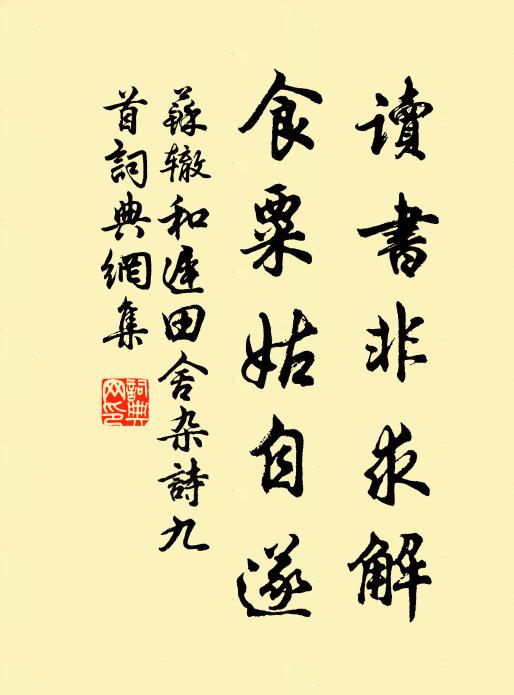 讀書非求解
食粟姑自遂
蘇辙和遲田舍杂詩九
首詞典網集
詞典
网印